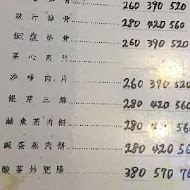 260 390 520
豉汁排骨 280 420 560
椒鹽排骨 260 390 520
菜心肉片
沙嗲肉片 260 390 520
銀芽三絲 280 420 560
鹹魚蒸肉餅 280 420 560
鹹蛋蒸肉餅 280 420 56
酸菜炒肥腸 380 570 76